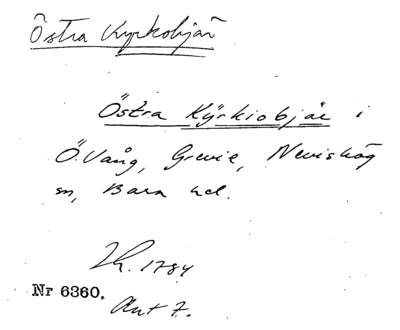 Östra Kyrkobjär
Östra Kÿrkiobjär i
Ö. Vång, Grevie, Nevishög
sn, Bara hd.
Lh. 1784
Nr 6360. Akt 7.